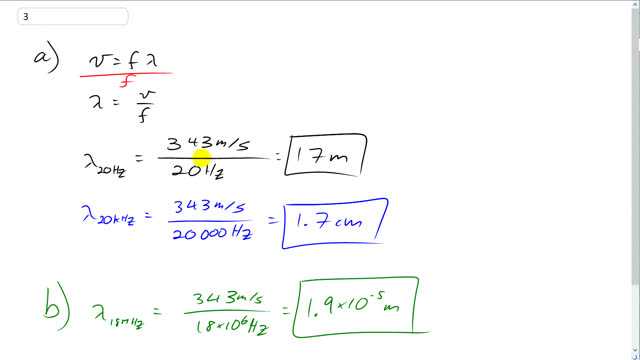 3
a) v = f λ
f
λ = v/f
λ20Hz = 343m/s / 20Hz = 17m
λ20kHz = 343m/s / 20000Hz = 1.7cm
b) λ18MHz = 343m/s / 18×10⁶Hz = 1.9×10⁻⁵ m